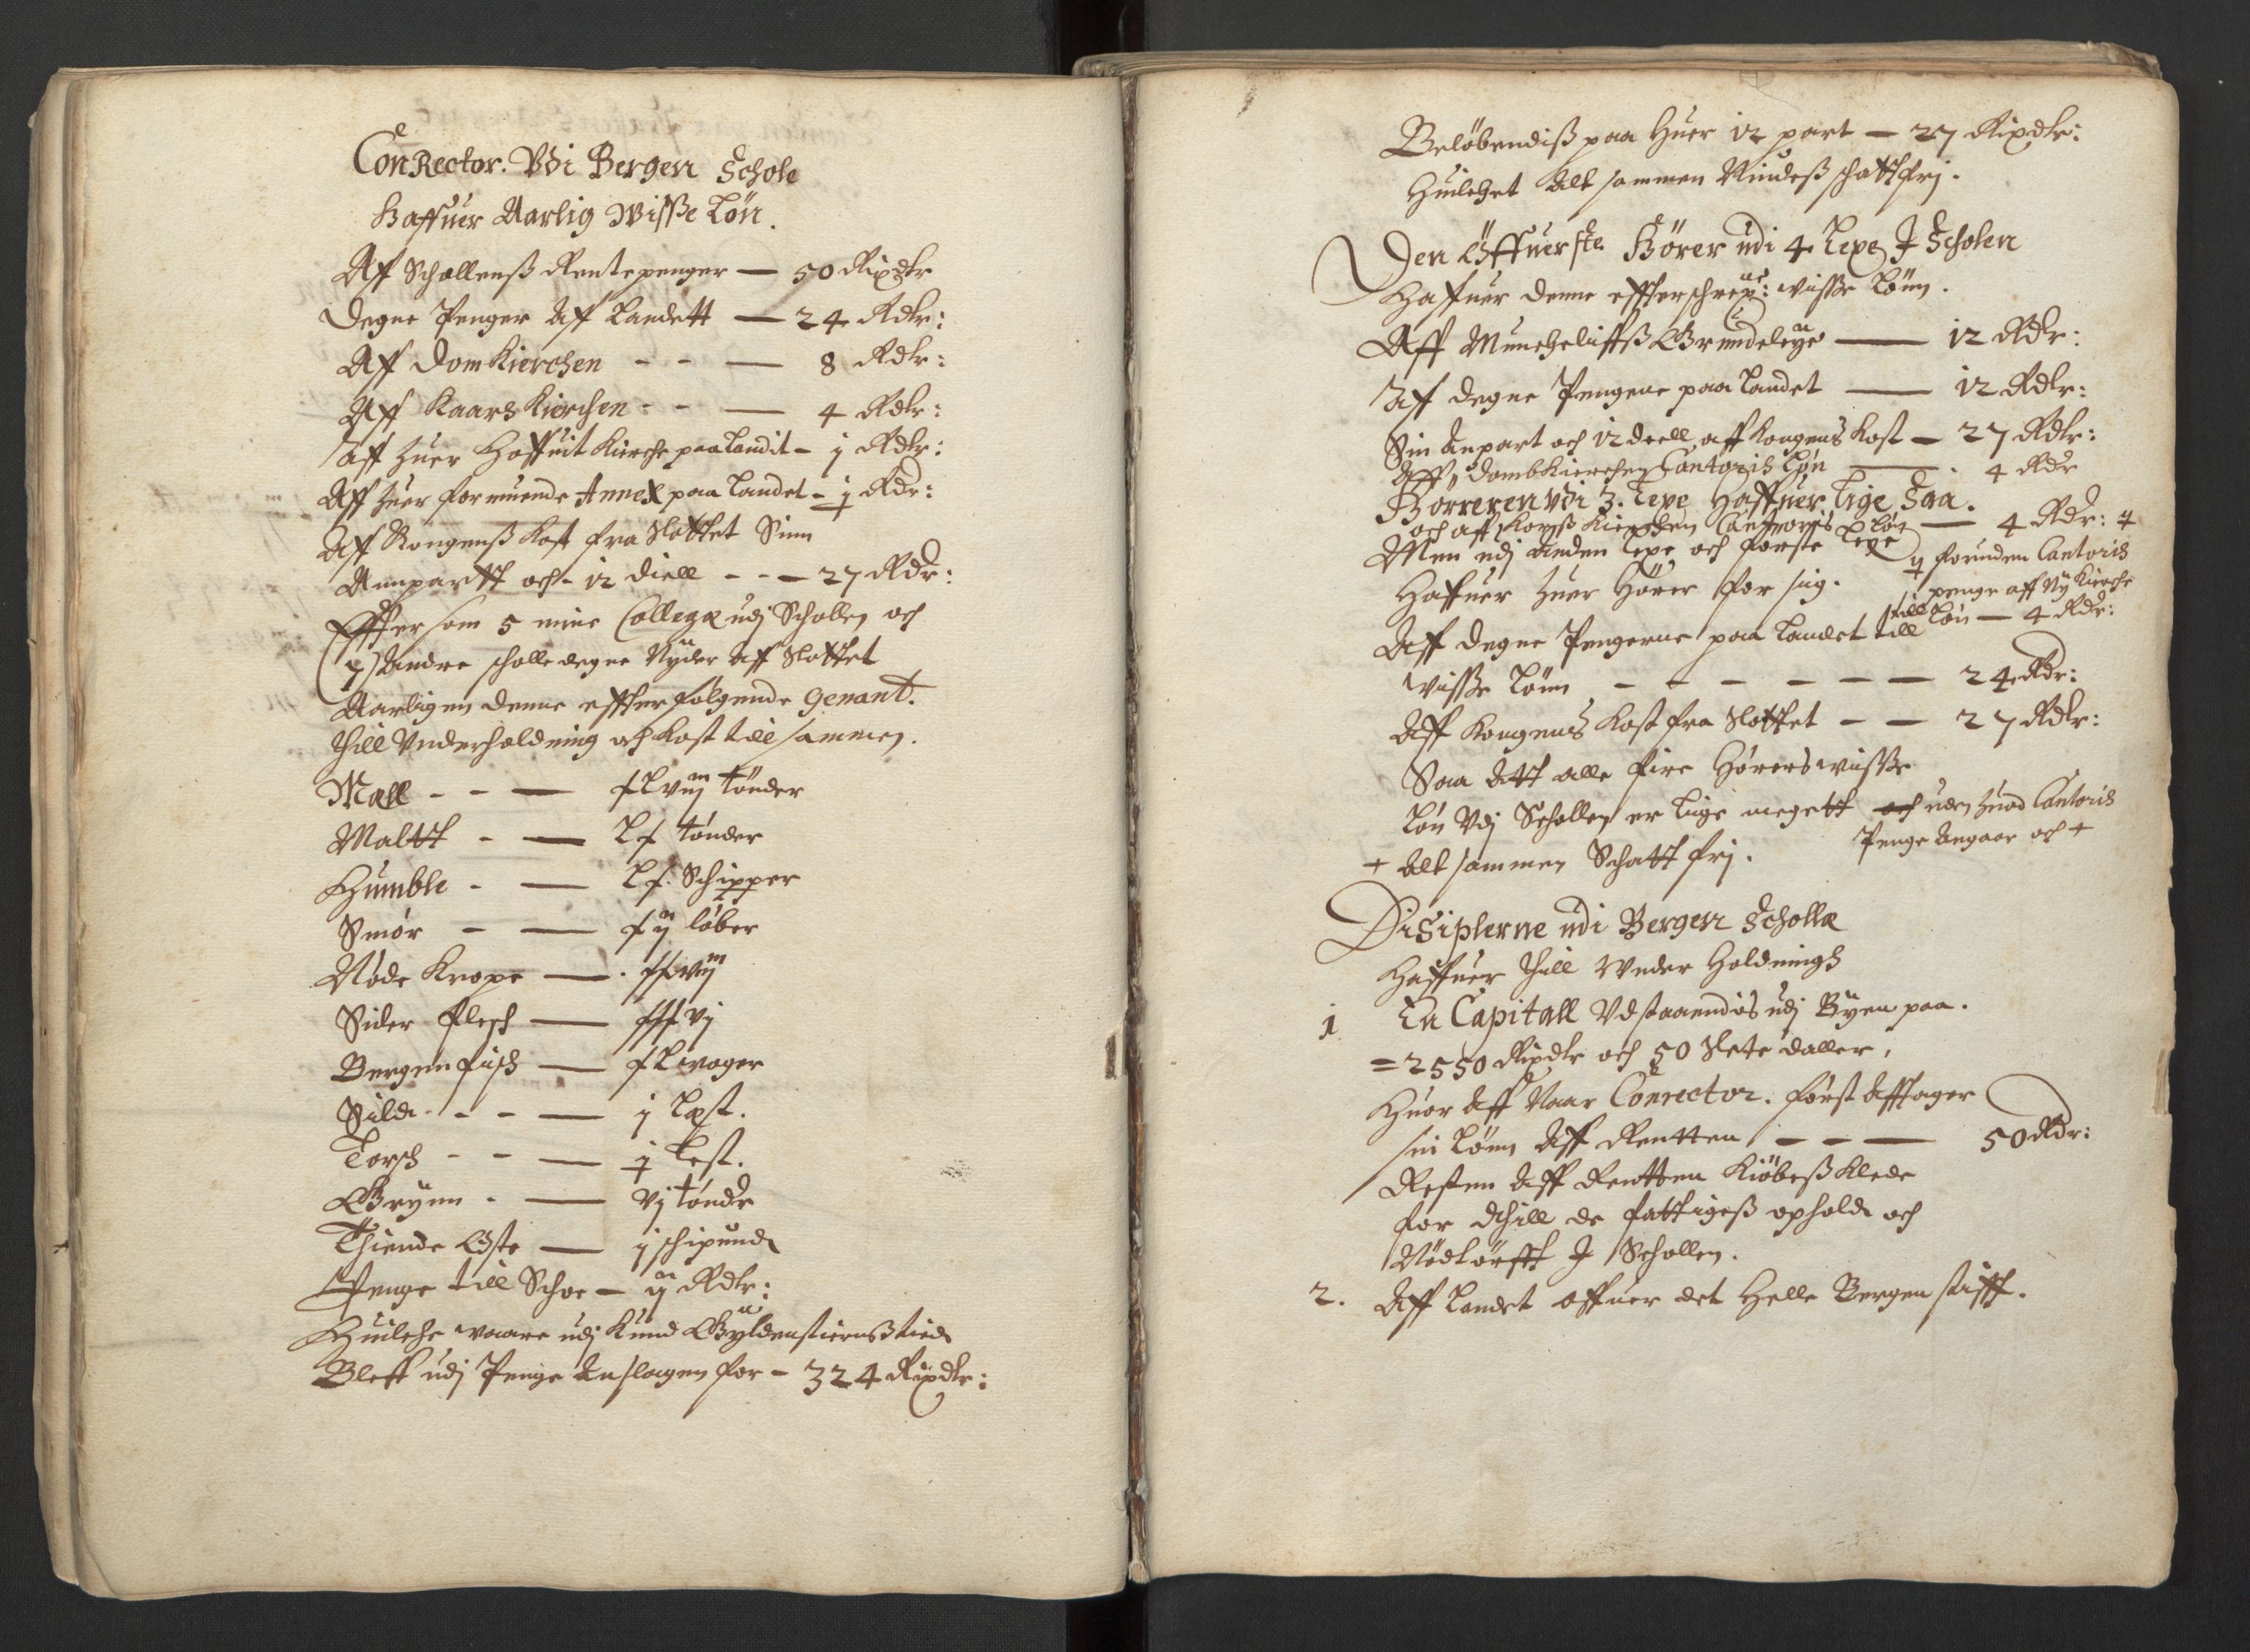 ConRector. Vdi Bergen Schole
Haffuer Aarlig Wisße Løn.
Aff Schollenß Rentepenger — 50 Rixdlr
Degne Penger Aff Landett — 24 Rdlr:
Aff Domkierchen - - — 8 Rdlr:
Aff Kaarskierchen - - — 4 Rdlr:
Aff huer Hoffuit Kirche paa Landit - j Rdlr:
Aff huer formuende Annex paa Landet - ɉ Rdr:
Aff Kongenß Kost fra Slottet Sinn
Annpartt och - 12 diell - - — 27 Rdr:
Effter som 5 mine Collegæ udj Scholle och
7) Andre scholle degne Nyder Aff Slottet
Aarligen denne effterfølgende Genant.
thill Vnderholdning och Kost till sammen.
Mæll - - — tønder
Maltt - — tønder
Humble - — Schipper
Smør - — løber
Nøde Kroper —
Sider Flesch —
Bergerfisch — woger
Sild - - - — j Læst.
Torsch - - — ɉ Lest.
Grynn - — vj tønder
Thiende Oste — j schipund
Penge till Schoe — ij Rdlr:
Huilche waare udj Knud Gyldenstiernß tied
Bleff udj Penge Anslagen for - 324 Rixdlr:
Beløbendiß paa Huer 12 part — 27 Rixdlr:
Huilchet Alt sammen Niudeß schattfrj.
Den Øffuerste Hører udi 4 Lexe J Scholen
Haffuer denne effterschreu: wisße Lønn.
Aff Munchelifftß Grundeleye — 12 Rdr:
Aff degne Pengene paa Landet — 12 Rdlr:
Sin Anpart och 12 deell aff Kongens Kost — 27 Rdlr:
Aff Dombkierchen Cantoris Løn — 4 Rdr
Hørreren Vdi 3. Lexe Haffuer Lige Saa.
och aff Korsß Kierchen Cantoris Løn — 4 Rdr:
Men udj Anden Lexe och første Lexe
forinden Cantoris
Haffuer huer Hører for sig.
penge aff Ny Kirche
Aff degne Pengerne paa Landet till
till Løn — 4 Rdr:
wisße Lønn - - - - - — 24 Rdr:
Aff Kongens Kost fra Slottet - — 27 Rdlr:
Saa Att alle fire Hørers wisße
Løn Vdj Schollen er Lige megett och uden huad Cantoris
Penge Angaar och +
+ Alt sammen Schatt frj.
Disiplerne udi Bergen Schollæ
Haffuer thill Vnder Holdnings
1 En Capitall Vdstaaendis udj Byen paa.
= 2550 Rixdlr och 50 Slete daller,
Huor Aff Naar Conrector. først Afftager
sin Lønn Aff Rentten - - — 50 Rdr:
Resten Aff Rentten Kiøbeß Klede
for thill de fattigeß ophold och
Nødtørfft J Schollen.
2. Aff Landet offuer det Helle Bergen stifft.